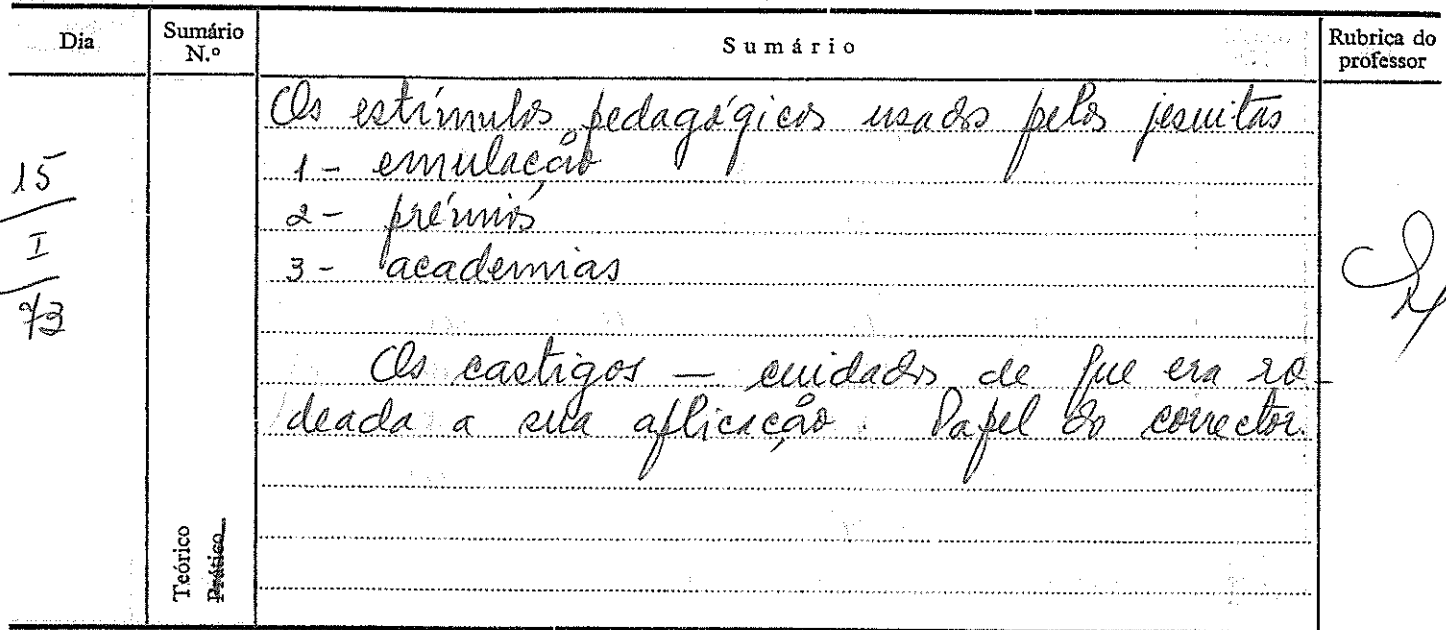 Dia
Sumário
N.º
Sumário
Rubrica do
professor
15
I
73
Os estímulos pedagógicos usados pelos jesuitas
1 - emulação
2 - prémios
3 - academias
Os castigos — cuidados de que era ro-
deada a sua aplicação. Papel do corrector.
Teórico
Prático